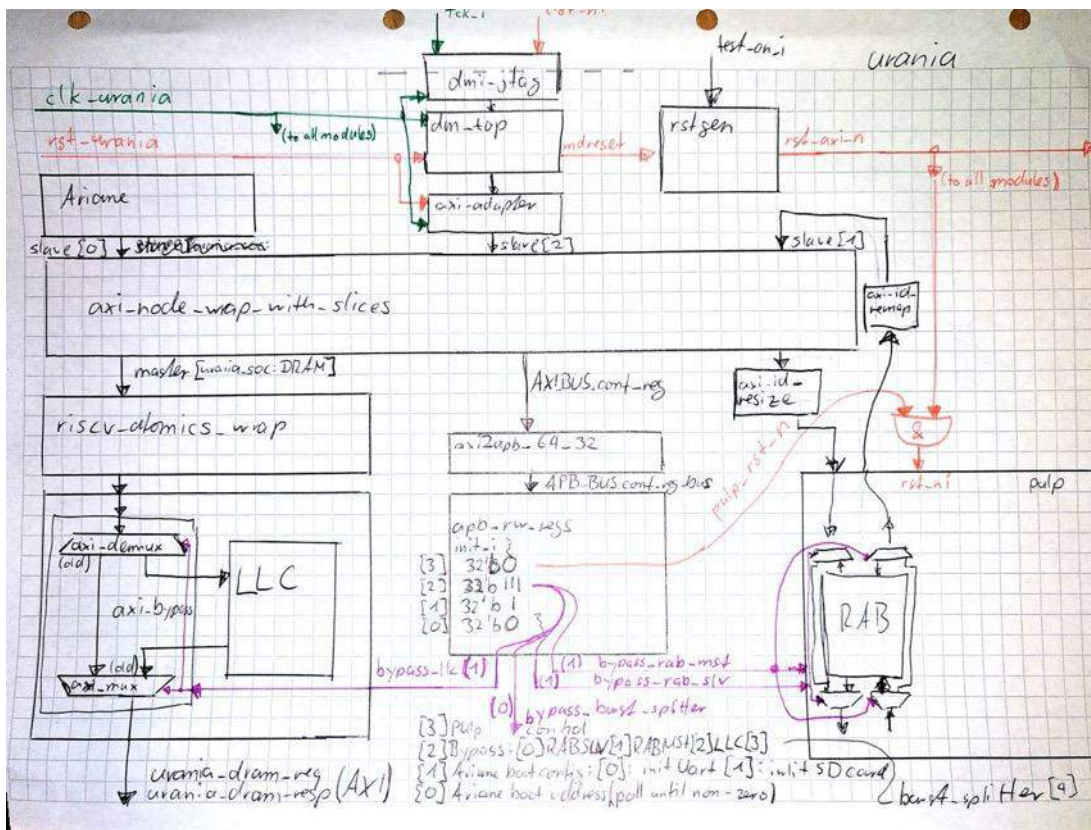 tck_i
test_on_i
urania
dmi_jtag
clk_urania
(to all modules)
dm_top
rstgen
rst_urania
ndreset
rst_axi_n
(to all modules)
Ariane
axi_adapter
slave[0]
slave[2]
slave[1]
axi_node_wrap_with_slices
axi_id_
remap
master[urania_soc:DRAM]
AXI_BUS.conf_reg
axi_id_
resize
riscv_atomics_wrap
axi2apb_64_32
&
pulp_rst_n
rst_ni
pulp
APB_BUS.conf_reg_bus
apb_rw_regs
init_i {
[3] 32'b0
[2] 32'b111
[1] 32'b1
[0] 32'b0 }
axi_demux
(old)
LLC
axi_bypass
(old)
axi_mux
RAB
bypass_llc [1]
(1) bypass_rab_mst
(1) bypass_rab_slv
[0] bypass_burst_splitter
[3] Pulp control
[2] Bypass: [0]RABSLV[1]RABMST[2]LLC[3]
[1] Ariane boot config: [0]: init Uart [1]: init SD card
[0] Ariane boot address (poll until non-zero)
urania_dram_req
urania_dram_resp (AXI)
burst_splitter